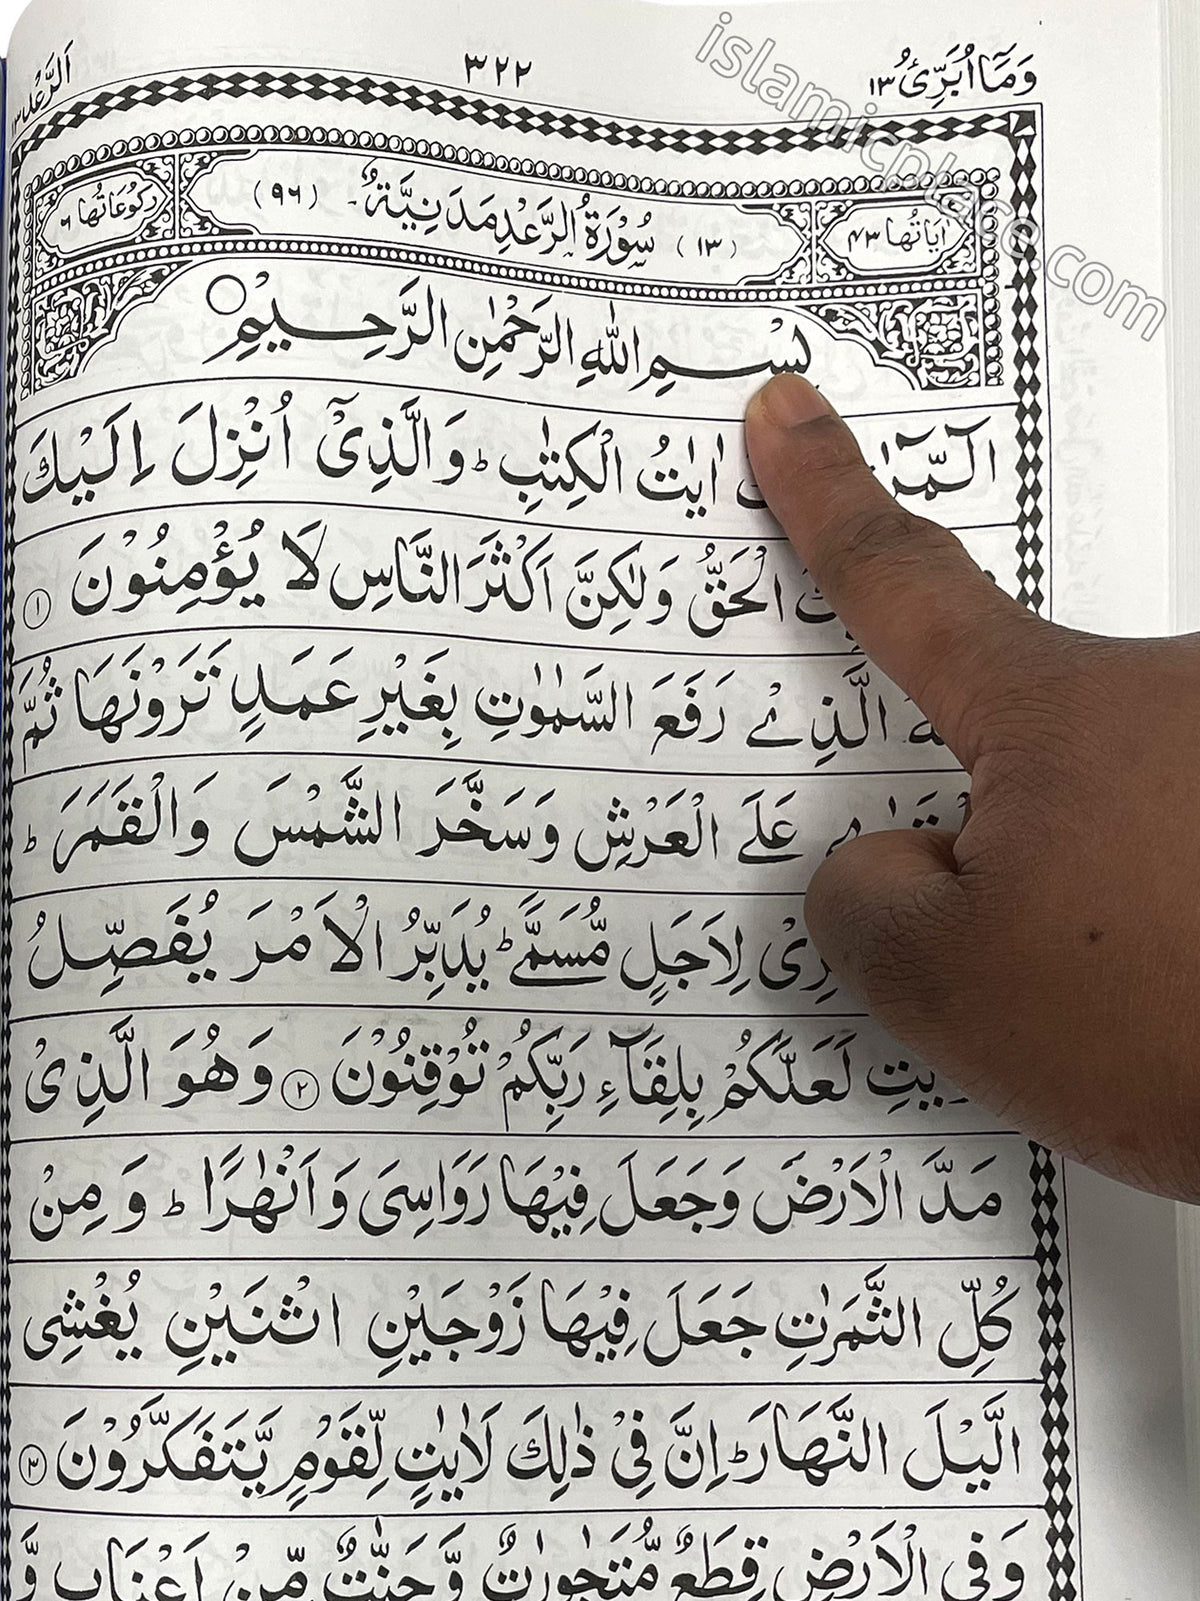 وَمَآ اُبَرِّئُ ١٣
٣٢٢
اَلرَّعْد ١٣
اٰيَاتُهَا ٤٣
(١٣) سُوْرَةُ الرَّعْدِ مَدَنِيَّةٌ (٩٦)
رُكُوْعَاتُهَا ٦
بِسْمِ اللّٰهِ الرَّحْمٰنِ الرَّحِيْمِ
الٓمّٓرٰ اٰيٰتُ الْكِتٰبِ ؕ وَالَّذِىْٓ اُنْزِلَ اِلَيْكَ
الْحَقُّ وَلٰكِنَّ اَكْثَرَ النَّاسِ لَا يُؤْمِنُوْنَ ١
الَّذِىْ رَفَعَ السَّمٰوٰتِ بِغَيْرِ عَمَدٍ تَرَوْنَهَا ثُمَّ
عَلَى الْعَرْشِ وَسَخَّرَ الشَّمْسَ وَالْقَمَرَ ؕ
لِاَجَلٍ مُّسَمًّى ؕ يُدَبِّرُ الْاَمْرَ يُفَصِّلُ
لَعَلَّكُمْ بِلِقَآءِ رَبِّكُمْ تُوْقِنُوْنَ ٢ وَهُوَ الَّذِىْ
مَدَّ الْاَرْضَ وَجَعَلَ فِيْهَا رَوَاسِىَ وَاَنْهٰرًا ؕ وَمِنْ
كُلِّ الثَّمَرٰتِ جَعَلَ فِيْهَا زَوْجَيْنِ اثْنَيْنِ يُغْشِى
الَّيْلَ النَّهَارَ ؕ اِنَّ فِىْ ذٰلِكَ لَاٰيٰتٍ لِّقَوْمٍ يَّتَفَكَّرُوْنَ ٣
وَفِى الْاَرْضِ قِطَعٌ مُّتَجٰوِرٰتٌ وَّجَنّٰتٌ مِّنْ اَعْنَابٍ وَّ
islamicplace.com